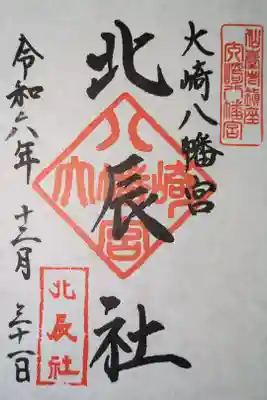 大崎八幡宮
北辰社
令和六年 十二月 三十一日
大崎八幡宮
大崎八幡宮
北辰社